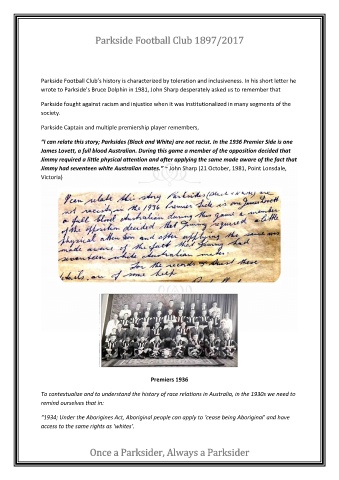 Parkside Football Club 1897/2017
Parkside Football Club's history is characterized by toleration and inclusiveness. In his short letter he
wrote to Parkside's Bruce Dolphin in 1981, John Sharp desperately asked us to remember that
Parkside fought against racism and injustice when it was institutionalized in many segments of the
society.
Parkside Captain and multiple premiership player remembers,
"I can relate this story; Parksides (Black and White) are not racist. In the 1936 Premier Side is one
James Lovett, a full blood Australian. During this game a member of the opposition decided that
Jimmy required a little physical attention and after applying the same made aware of the fact that
Jimmy had seventeen white Australian mates." ~ John Sharp (21 October, 1981, Point Lonsdale,
Victoria)
I can relate this story Parksides (Black &amp; White) are
not racist; in the 1936 Premier Side is one James Lovett
a full blood Australian during this game a member
of the opposition decided that Jimmy required a little
physical attention and after applying the same was
made aware of the fact that Jimmy had
seventeen white Australian mates.
For the records I trust these
are of some help
Premiers 1936
To contextualise and to understand the history of race relations in Australia, in the 1930s we need to
remind ourselves that in:
"1934; Under the Aborigines Act, Aboriginal people can apply to 'cease being Aboriginal' and have
access to the same rights as 'whites'.
Once a Parksider, Always a Parksider